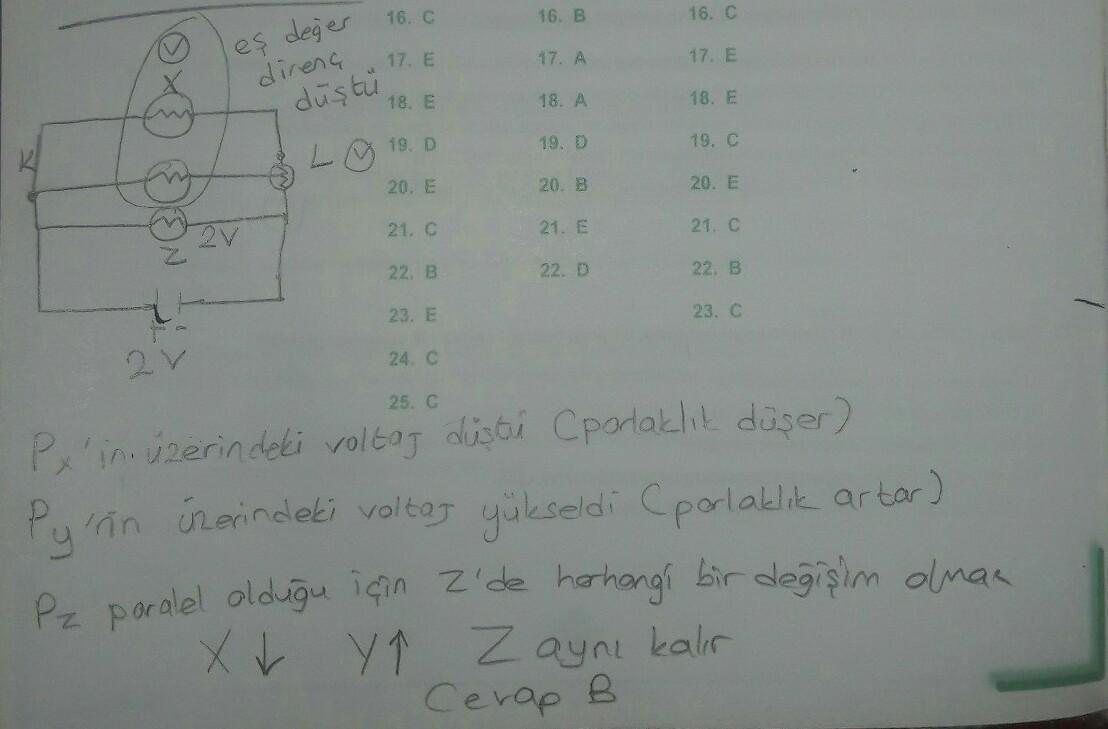 eş değer
direnç
düştü
X
K
L
Z 2V
+ -
2V
16. C 16. B 16. C
17. E 17. A 17. E
18. E 18. A 18. E
19. D 19. D 19. C
20. E 20. B 20. E
21. C 21. E 21. C
22. B 22. D 22. B
23. E 23. C
24. C
25. C
Px'in üzerindeki voltaj düştü (parlaklık düşer)
Py'nin üzerindeki voltaj yükseldi (parlaklık artar)
Pz paralel olduğu için Z'de herhangi bir değişim olmaz
X↓ Y↑ Z aynı kalır
Cevap B